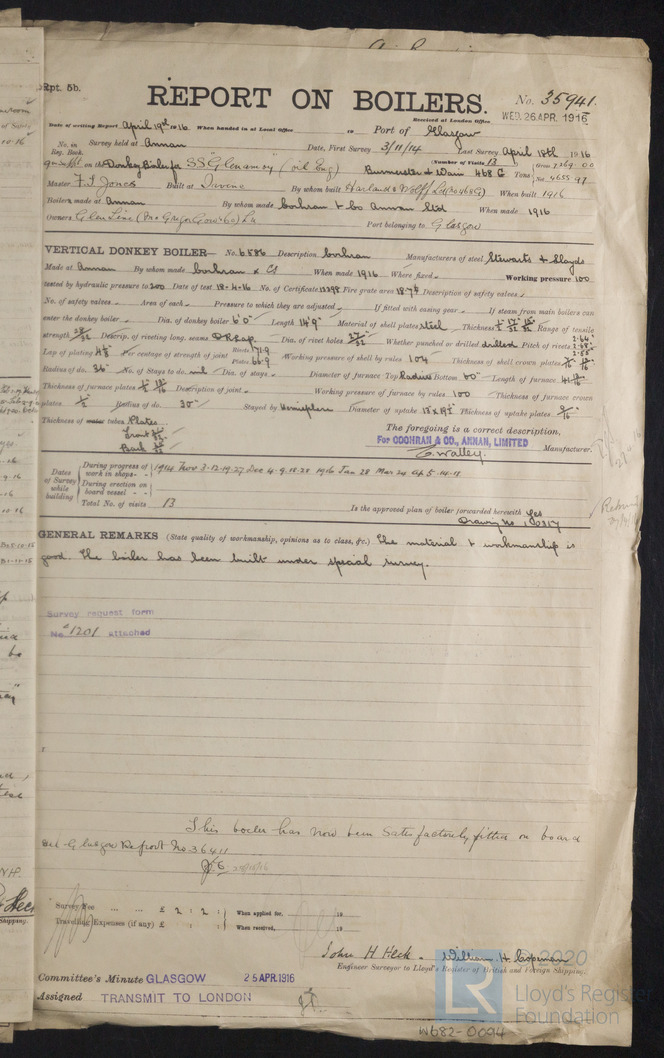 Rpt. 5b.
REPORT ON BOILERS.
No. 35941.
Received at London Office WED. 26 APR. 1916
Date of writing Report April 19th 1916 When handed in at Local Office 19 Port of Glasgow
No. in Reg. Book. Survey held at Annan Date, First Survey 3/11/14 Last Survey April 18th 1916
on the Donkey Boiler for SS "Glenamoy" (oil Eng) (Number of Visits 13) Gross 7269.00
Burmeister & Wain 468 G Tons Net 4655.97
Master F. S. Jones Built at Irvine By whom built Harland & Wolff Ld (No 468G) When built 1916
Boilers made at Annan By whom made Cochran & Co Annan Ltd When made 1916
Owners Glen Line (McGregor Gow & Co) Ld Port belonging to Glasgow
VERTICAL DONKEY BOILER— No. 6586 Description Cochran Manufacturers of steel Stewarts & Lloyds
Made at Annan By whom made Cochran & Co When made 1916 Where fixed Working pressure 100
tested by hydraulic pressure to 200 Date of test 18-4-16 No. of Certificate 13298 Fire grate area 18.7 Description of safety valves
No. of safety valves Area of each Pressure to which they are adjusted If fitted with easing gear If steam from main boilers can
enter the donkey boiler Dia. of donkey boiler 6'0" Length 14'9" Material of shell plates Steel Thickness Range of tensile
strength 28/32 Descrip. of riveting long. seams D R Lap Dia. of rivet holes 27/32" Whether punched or drilled drilled Pitch of rivets
Lap of plating Per centage of strength of joint Rivets 71.9 Plates 66.9 Working pressure of shell by rules 104 Thickness of shell crown plates
Radius of do. 36" No. of Stays to do. nil Dia. of stays Diameter of furnace Top Radius Bottom 60" Length of furnace
Thickness of furnace plates Description of joint Working pressure of furnace by rules 100 Thickness of furnace crown
plates Radius of do. 30" Stayed by Hemisphere Diameter of uptake Thickness of uptake plates 9/16"
Thickness of tubes Plates
Front
Back
The foregoing is a correct description,
For COCHRAN & CO., ANNAN, LIMITED
C. Walley. Manufacturer.
Dates of Survey while building
During progress of work in shops - - 1914 Nov 3-12-19-27 Dec 4-9-18-28 1916 Jan 28 Mar 24 Ap 5-14-18
During erection on board vessel - - -
Total No. of visits 13
Is the approved plan of boiler forwarded herewith Yes
Drawing No 10317
GENERAL REMARKS (State quality of workmanship, opinions as to class, &c.) The material & workmanship is
good. The boiler has been built under special survey.
Survey request form
No. 1201 attached
This boiler has now been satisfactorily fitted on board
See Glasgow Report No 36411
Survey Fee ... ... £ 2 : 2 : When applied for, 19
Travelling Expenses (if any) £ : : When received, 19
John H Heck. William H. Copeman
Engineer Surveyor to Lloyd's Register of British and Foreign Shipping.
Committee's Minute GLASGOW 25 APR. 1916
Assigned TRANSMIT TO LONDON
LR
2020
Lloyd's Register
Foundation
W682-0094